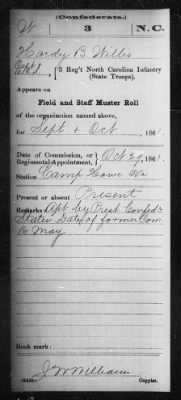 (Confederate.)
W 3 N.C.
Hardy B. Willis
3 Reg't North Carolina Infantry
(State Troops).
Appears on
Field and Staff Muster Roll
of the organization named above,
for Sept & Oct, 1861.
Date of Commission, or
Regimental Appointment, Oct 29, 1861.
Station Camp Howe Va
Present or absent Present
Remarks: Apt by Prest. Confed
States Date of former Com
16 May
Book mark:
J W Williams
Copyist.